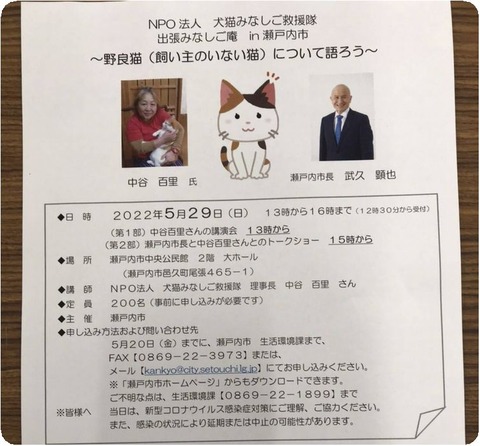 NPO法人 犬猫みなしご救援隊
出張みなしご庵 in瀬戸内市
～野良猫（飼い主のいない猫）について語ろう～
中谷 百里 氏
瀬戸内市長 武久 顕也
◆日 時 2022年5月29日（日） 13時から16時まで（12時30分から受付）
（第1部）中谷百里さんの講演会 13時から
（第2部）瀬戸内市長と中谷百里さんとのトークショー 15時から
◆場 所 瀬戸内市中央公民館 2階 大ホール
（瀬戸内市邑久町尾張465－1）
◆講 師 NPO法人 犬猫みなしご救援隊 理事長 中谷 百里 さん
◆定 員 200名（事前に申し込みが必要です）
◆主 催 瀬戸内市
◆申し込み方法および問い合わせ先
5月20日（金）までに、瀬戸内市 生活環境課まで、
FAX【0869－22－3973】または、
メール【kankyo@city.setouchi.lg.jp】にてお申し込みください。
※「瀬戸内市ホームページ」からもダウンロードできます。
ご不明な点は、生活環境課【0869－22－1899】まで
※皆様へ 当日は、新型コロナウイルス感染症対策にご理解、ご協力ください。
また、感染の状況により延期または中止の可能性があります。